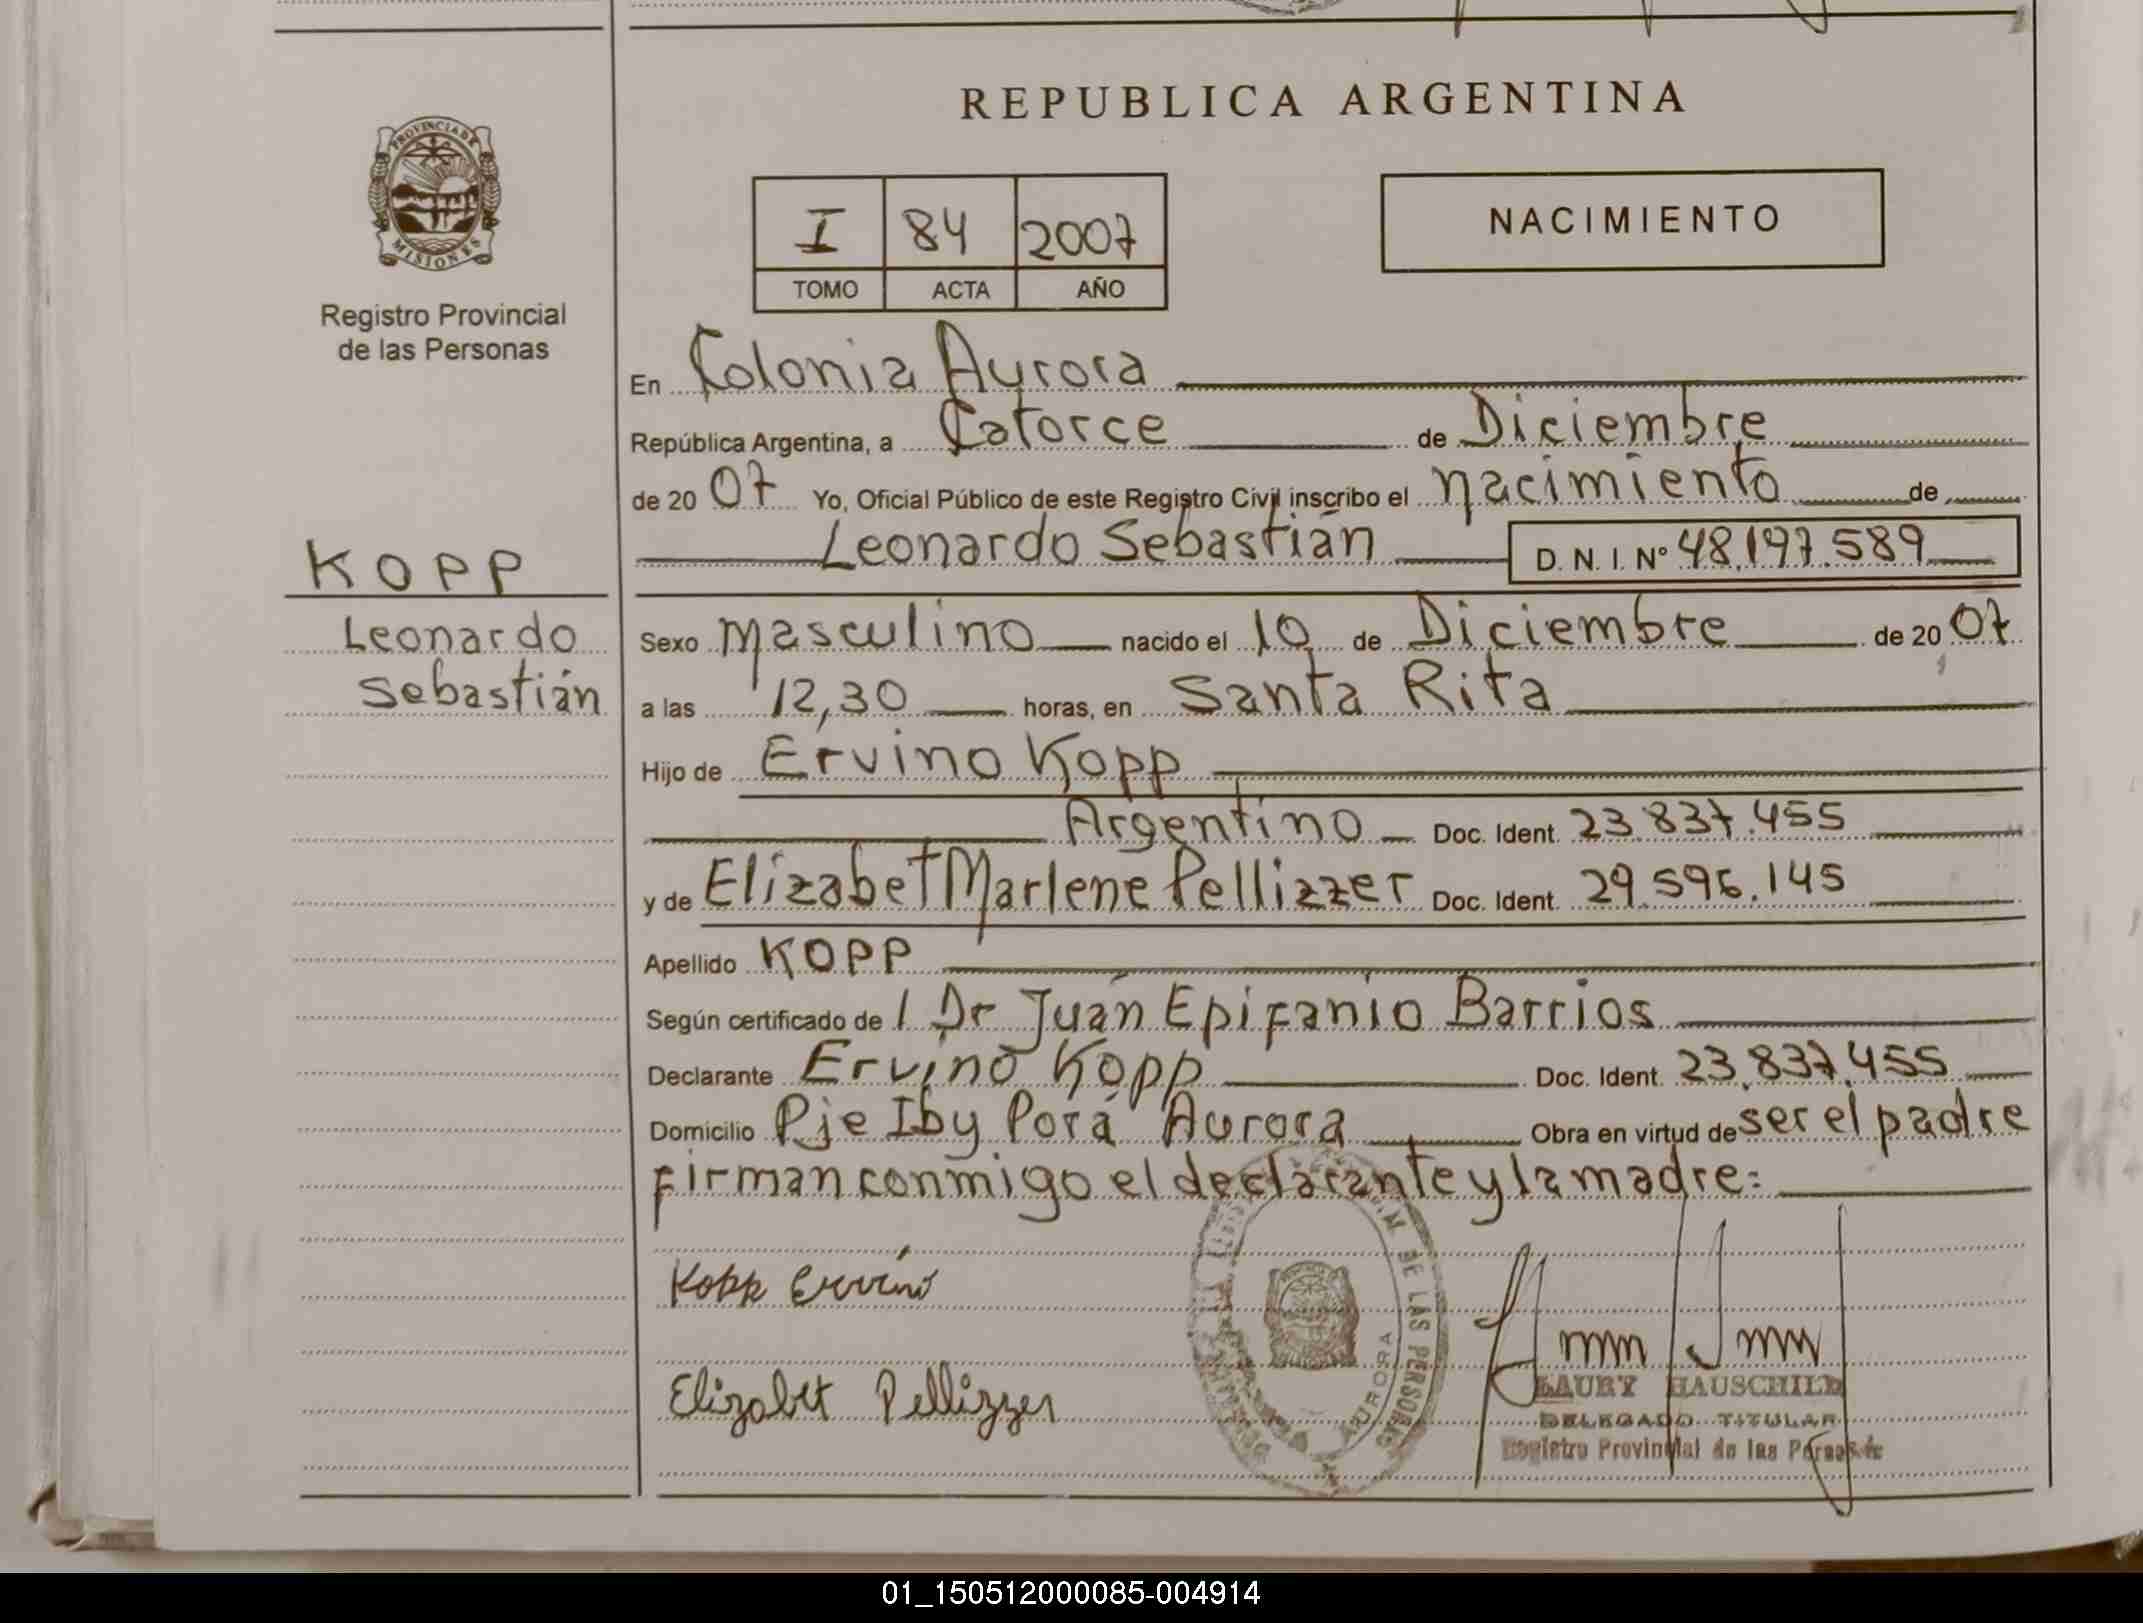 REPUBLICA ARGENTINA
PROVINCIA DE
MISIONES
Registro Provincial
de las Personas
I 84 2007
TOMO ACTA AÑO
NACIMIENTO
En Colonia Aurora
República Argentina, a Catorce de Diciembre
de 2007 Yo, Oficial Público de este Registro Civil inscribo el nacimiento de
Leonardo Sebastián D. N. I. Nº 48.197.589
KOPP
Leonardo
Sebastián
Sexo Masculino nacido el 10 de Diciembre de 2007
a las 12,30 horas, en Santa Rita
Hijo de Ervino Kopp
Argentino Doc. Ident. 23.837.455
y de Elizabet Marlene Pellizzer Doc. Ident. 29.596.145
Apellido KOPP
Según certificado de l Dr Juán Epifanio Barrios
Declarante Ervino Kopp Doc. Ident. 23.837.455
Domicilio Pje Iby Porá Aurora Obra en virtud de ser el padre
firman conmigo el declarante y la madre:
Kopp Ervino
Elizabet Pellizzer
DE LAS PERSONAS
AURORA
LAURY HAUSCHILD
DELEGADO TITULAR
Registro Provincial de las Personas
01_150512000085-004914